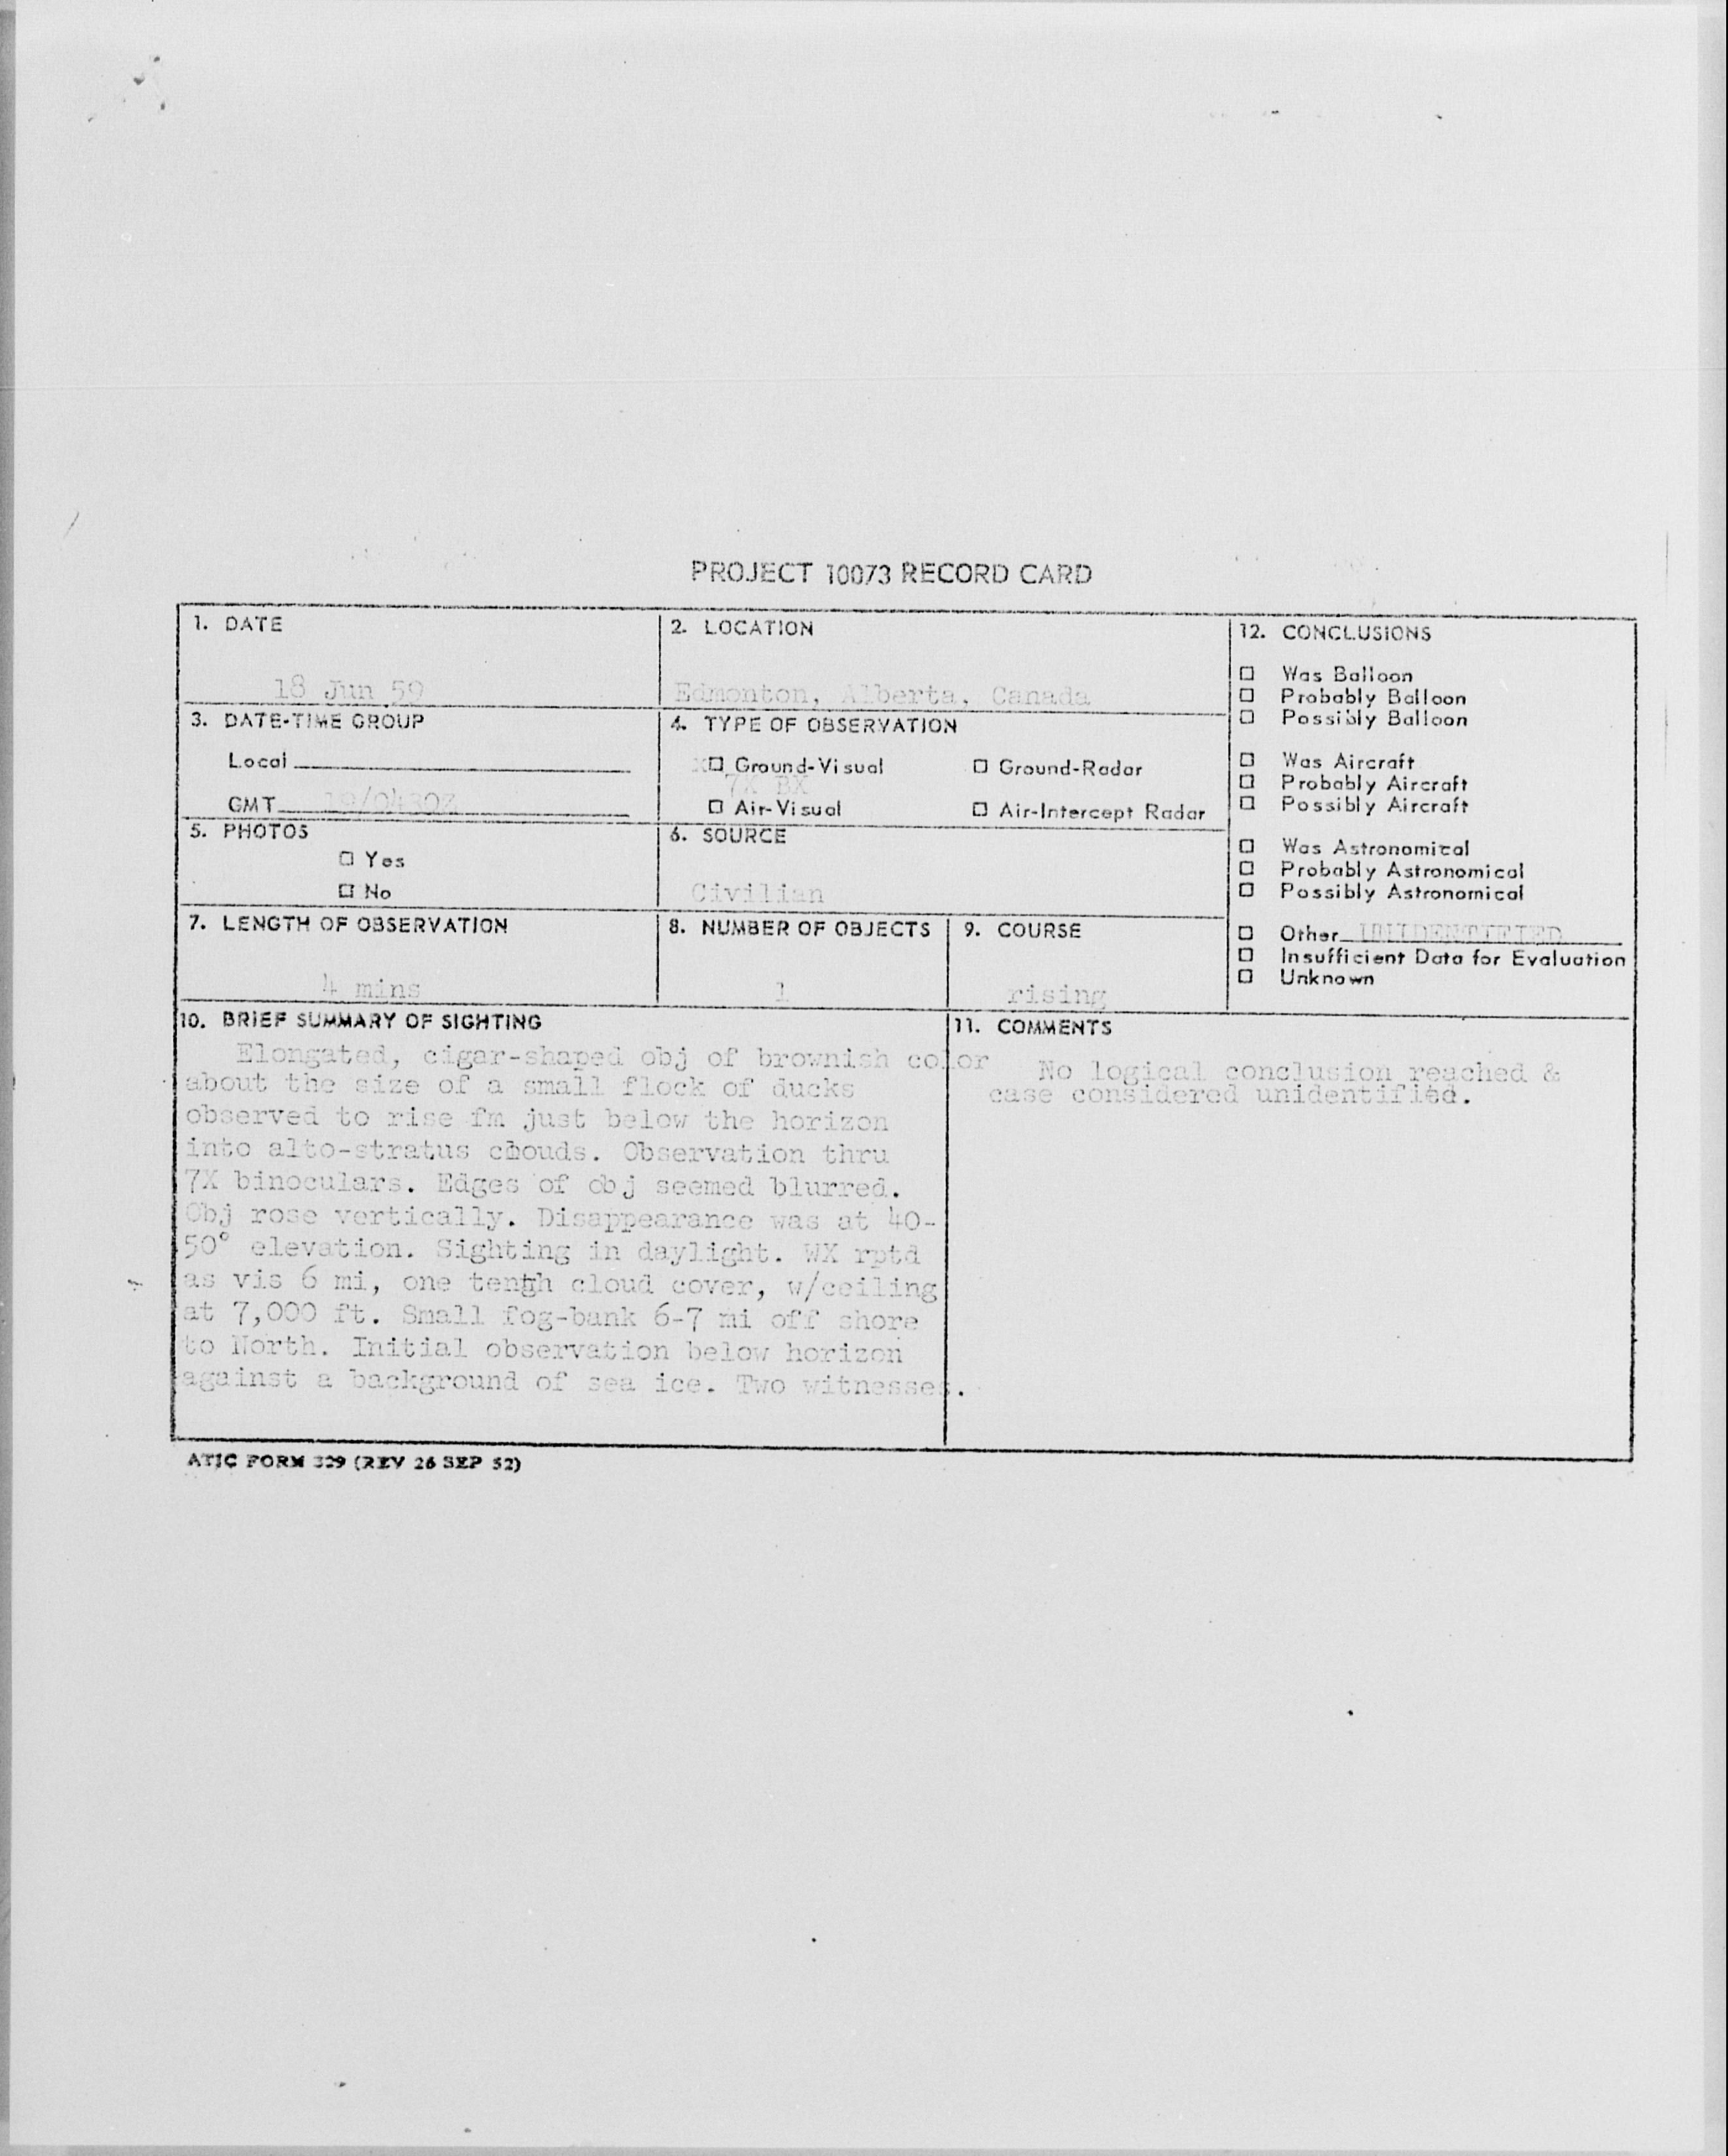 PROJECT 10073 RECORD CARD
1. DATE
18 Jun 59
2. LOCATION
Edmonton, Alberta, Canada
3. DATE-TIME GROUP
Local
GMT 19/0430Z
4. TYPE OF OBSERVATION
X☐ Ground-Visual ☐ Ground-Radar
7X BX
☐ Air-Visual ☐ Air-Intercept Radar
5. PHOTOS
☐ Yes
☐ No
6. SOURCE
Civilian
7. LENGTH OF OBSERVATION
4 mins
8. NUMBER OF OBJECTS
1
9. COURSE
rising
10. BRIEF SUMMARY OF SIGHTING
Elongated, cigar-shaped obj of brownish color
about the size of a small flock of ducks
observed to rise fm just below the horizon
into alto-stratus chouds. Observation thru
7X binoculars. Edges of obj seemed blurred.
Obj rose vertically. Disappearance was at 40-
50° elevation. Sighting in daylight. WX rptd
as vis 6 mi, one tength cloud cover, w/ceiling
at 7,000 ft. Small fog-bank 6-7 mi off shore
to North. Initial observation below horizon
against a background of sea ice. Two witnesses.
11. COMMENTS
No logical conclusion reached &
case considered unidentified.
12. CONCLUSIONS
☐ Was Balloon
☐ Probably Balloon
☐ Possibly Balloon
☐ Was Aircraft
☐ Probably Aircraft
☐ Possibly Aircraft
☐ Was Astronomical
☐ Probably Astronomical
☐ Possibly Astronomical
☐ Other UNIDENTIFIED
☐ Insufficient Data for Evaluation
☐ Unknown
ATIC FORM 329 (REV 26 SEP 52)